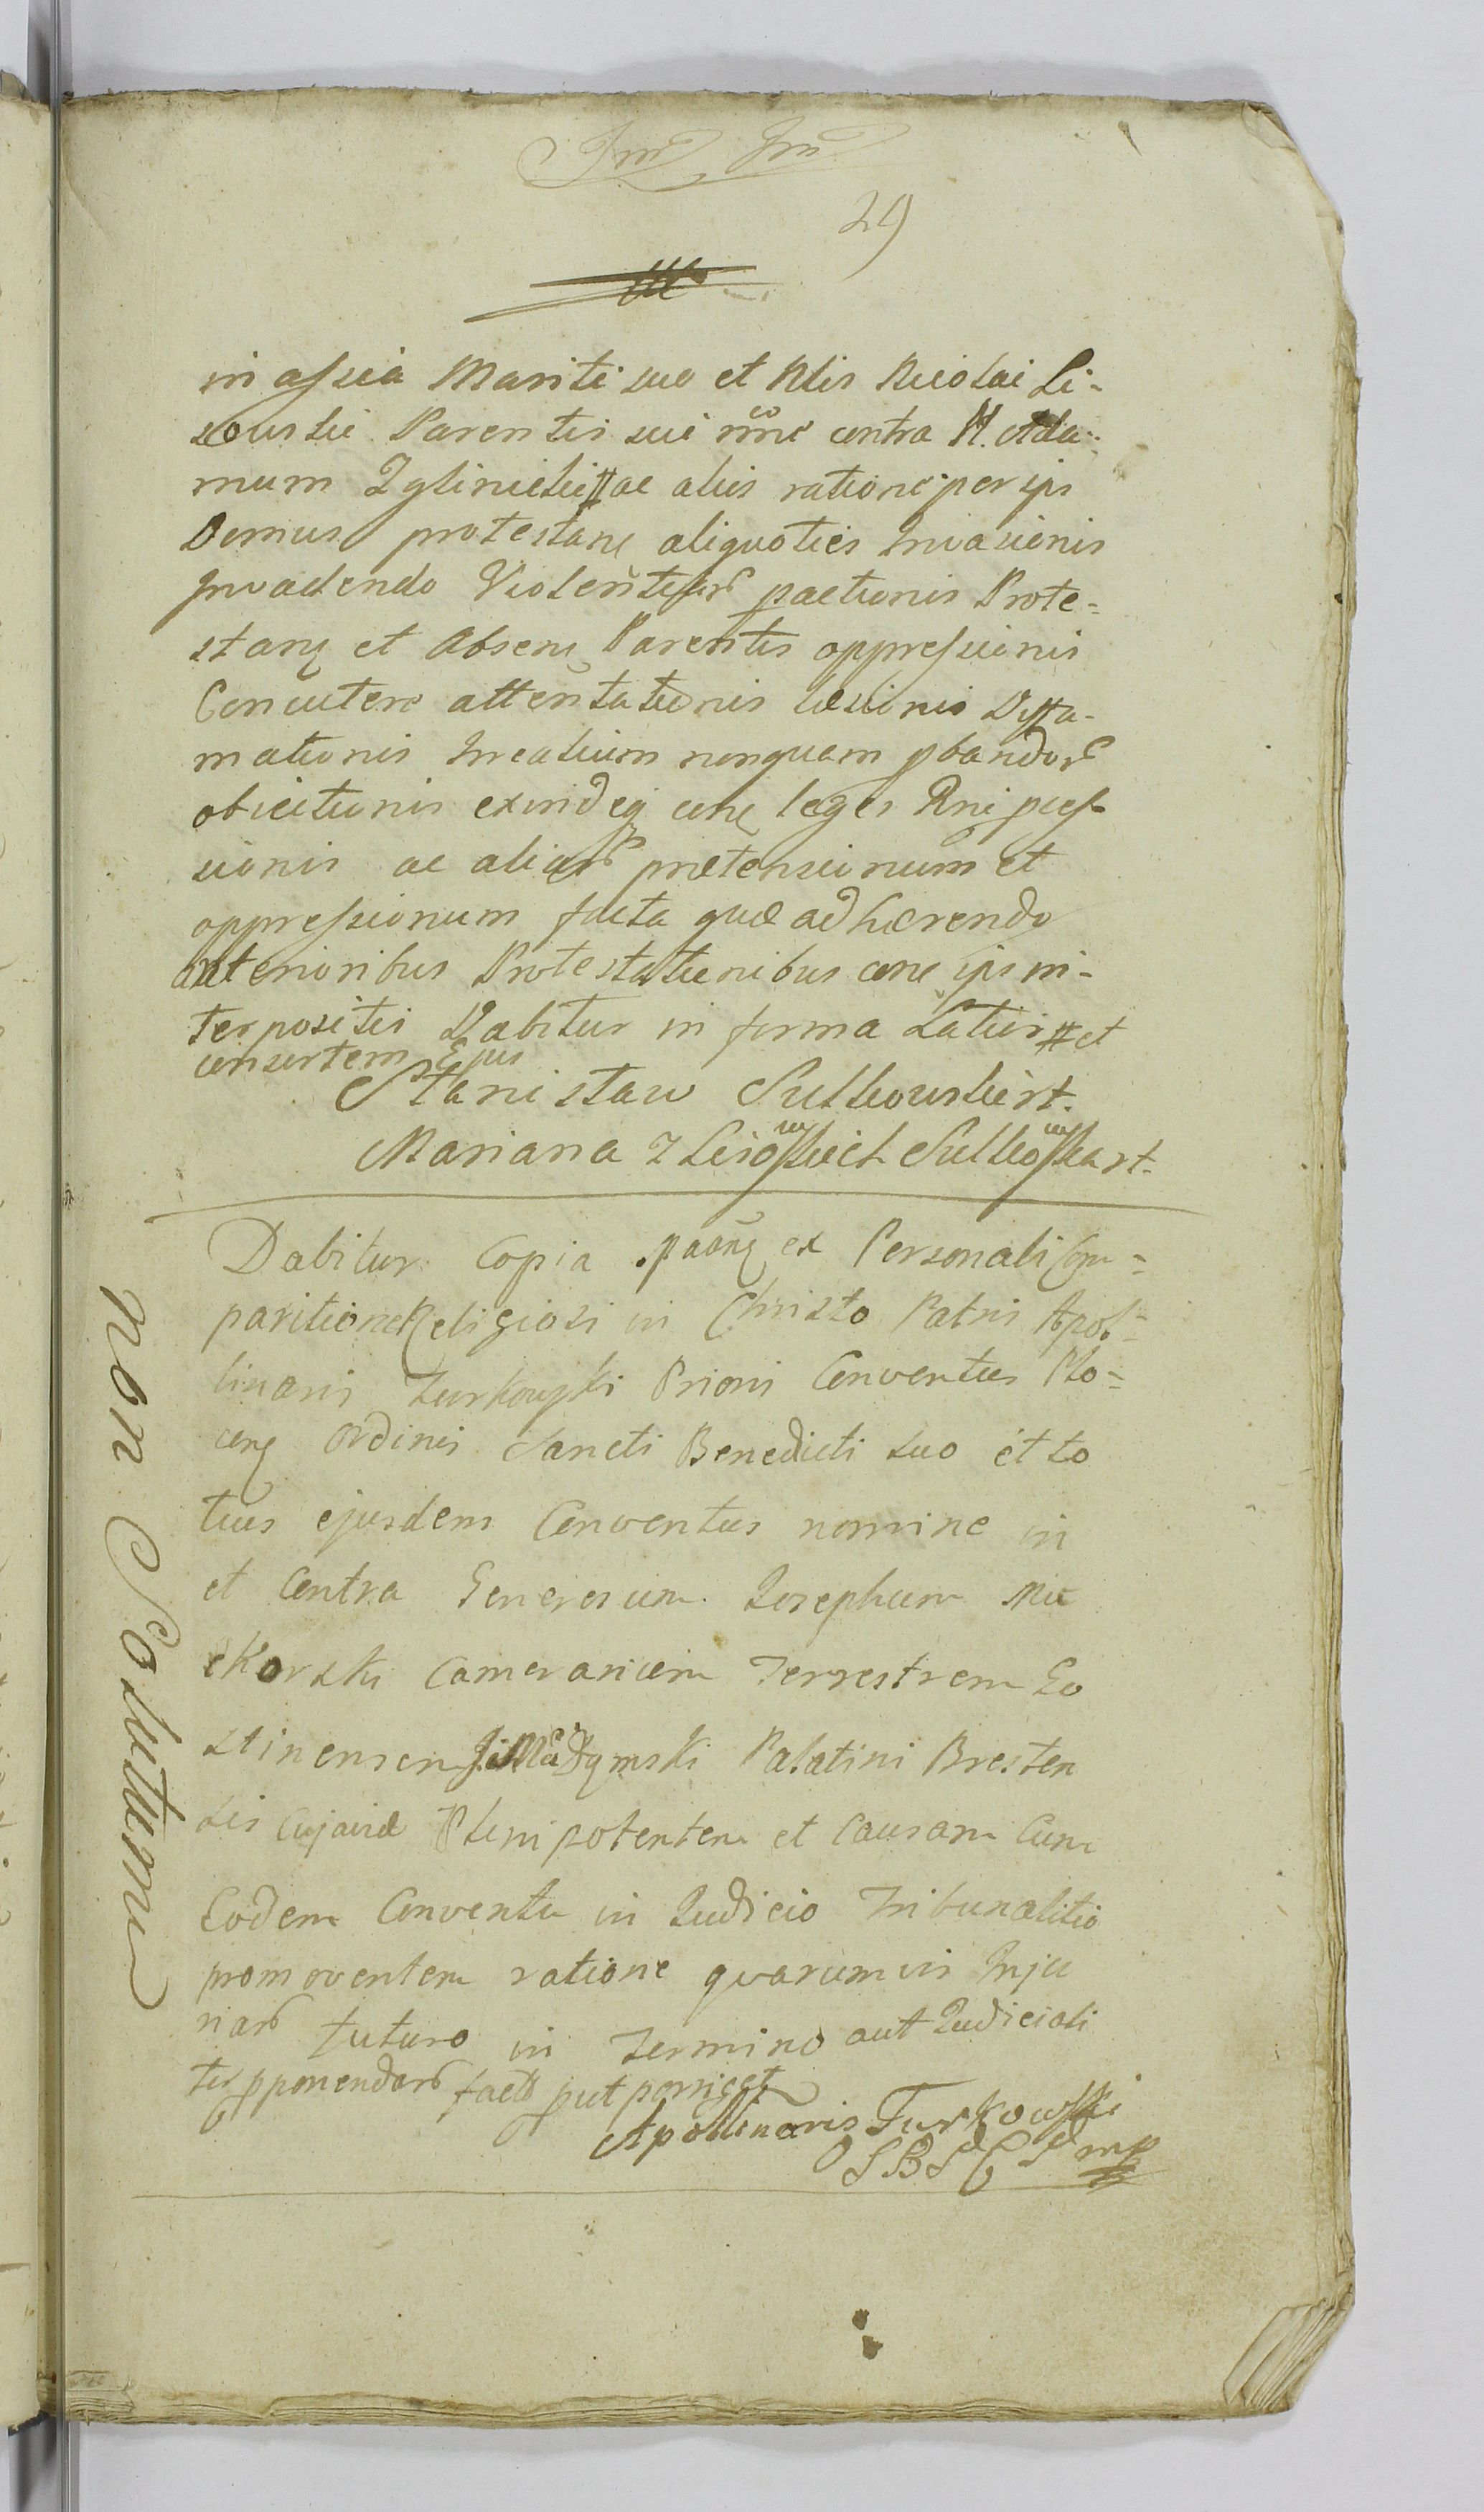 29
in assia Mariti suo et Nlis Nicolai Li-
sowski Parentis sui nne contra N. Ada-
mum Zglinicki # ac aliis ratione per ips
Domus protestan aliquoties Invasionis
Invadendo Violentiar pactionis Prote=
stan et Absen Parentis oppressionis
Concutere attentationis læsionis Diffa-
mationis Incalium nunquam pbandor
obiectionis exindeq cone leges Rni
sionis ac aliar prætensionum et
oppressionum facta quæ adhærendo
anterioribus Protestationibus cone ips in-
terpositis Dabitur in forma Latiori # et
consortem Ejus
Stanisław Sulkowski rt.
Mariana z Lisowskich Sulkowska rt.
Dabitur Copia paonis ex Personali Com=
paritione Religiosi in Christo Patris Apol=
linaris Turkowski Prioris Conventus Plo=
cen Ordinis Sancti Benedicti suo et to
tius ejusdem Conventus nomine in
et Contra Generosum Josephum Mie
Camerarium Terrestrem Go
stinensem Palatini Bresten
sis Cujaviæ Plenipotentem et Causam Cum
Eodem Conventu in Judicio Tribunalitio
promoventem ratione quarumvis Inju
riar futuro in Termino aut Judiciali
ter pponendar facta put porriget
Apollinaris Turkowski
OSB mp
non Solutum